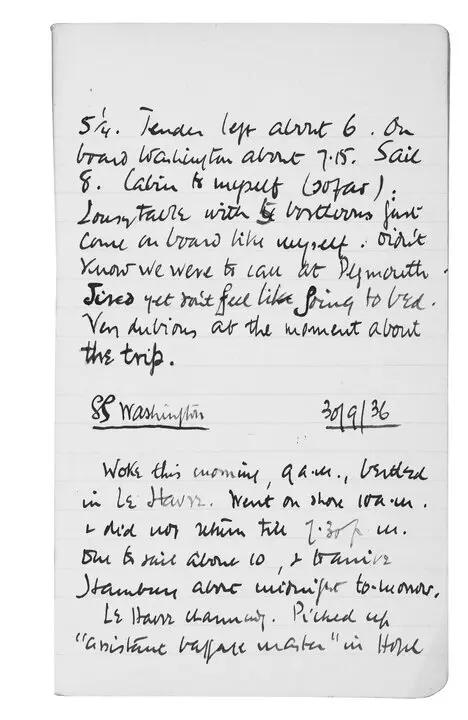 5 1/4. Tender left about 6. On
board Washington about 7.15. Sail
8. Cabin to myself (so far).
Lousy table with just
come on board like myself. Didn't
know we were to call at Plymouth.
Tired yet don't feel like going to bed.
Very dubious at the moment about
the trip.
SS Washington 30/9/36
Woke this morning, 9 a.m., berthed
in Le Havre. Went on shore 10 a.m.
& did not return till 7.30 p.m.
Due to sail about 10, & to arrive
Hamburg about midnight to-morrow.
Le Havre charming. Picked up
"assistant baggage master" in Hotel